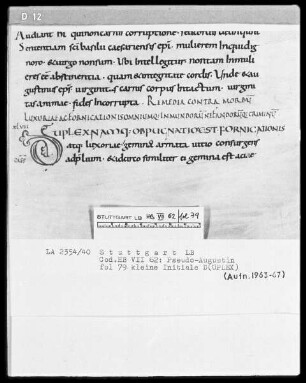 D 12
Audiant hi qui non carnis corruptione
Sententiam sci basilii caesariensis epi. mulierem inquid ig
noro. & uirgo non sum. Ubi intellegitur non tam in muli
ere esse abstinentia. quam & integritate cordis. Unde & au
gustinus eps. uirginitas carnis corpus intactum. uirgini
tas animae. fides incorrupta. REMEDIA CONTRA
LUXORIAE
DUPLEX NAMQ. OBPUGNATIO EST FORNICATIONIS
atq. luxoriae. gemina armata uitio consurgens
ad plium. & idcirco similiter & gemina est acies
STUTTGART LB HB VII 62 / fol. 79
LA 2354/40 Stuttgart LB
Cod.HB VII 62: Pseudo-Augustin
fol 79 kleine Initiale D(UPLEX)
(Aufn.1963-67)